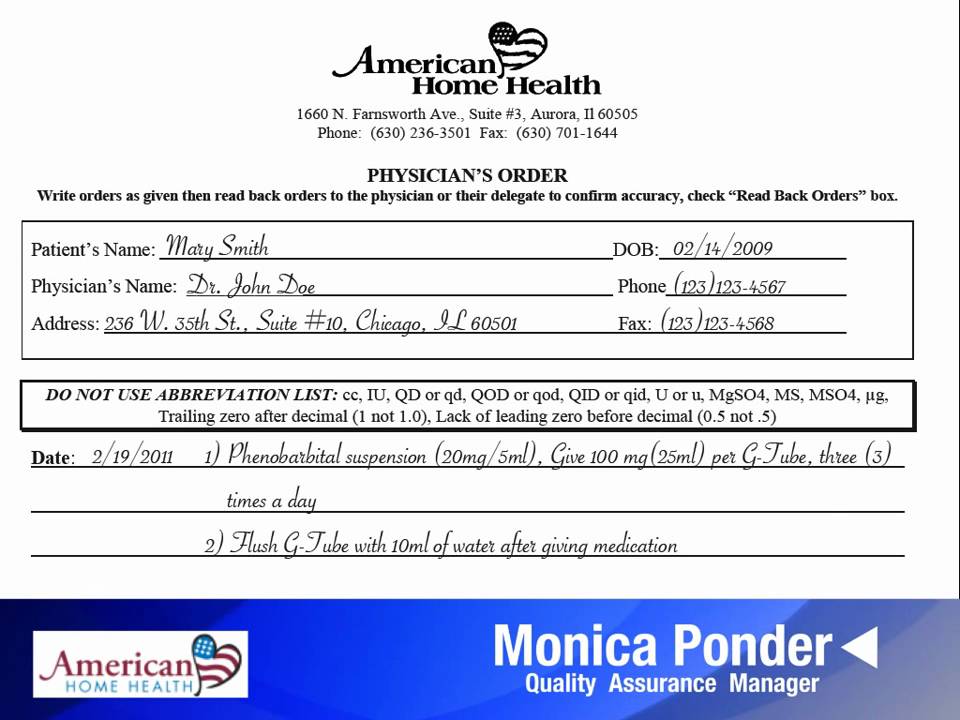 American
Home Health
1660 N. Farnsworth Ave., Suite #3, Aurora, Il 60505
Phone: (630) 236-3501 Fax: (630) 701-1644
PHYSICIAN'S ORDER
Write orders as given then read back orders to the physician or their delegate to confirm accuracy, check “Read Back Orders” box.
Patient's Name: Mary Smith DOB: 02/14/2009
Physician's Name: Dr. John Doe Phone (123)123-4567
Address: 236 W. 35th St., Suite #10, Chicago, IL 60501 Fax: (123)123-4568
DO NOT USE ABBREVIATION LIST: cc, IU, QD or qd, QOD or qod, QID or qid, U or u, MgSO4, MS, MSO4, µg,
Trailing zero after decimal (1 not 1.0), Lack of leading zero before decimal (0.5 not .5)
Date: 2/19/2011 1) Phenobarbital suspension (20mg/5ml), Give 100 mg(25ml) per G-Tube, three (3)
times a day
2) Flush G-Tube with 10ml of water after giving medication
American
HOME HEALTH
Monica Ponder
Quality Assurance Manager